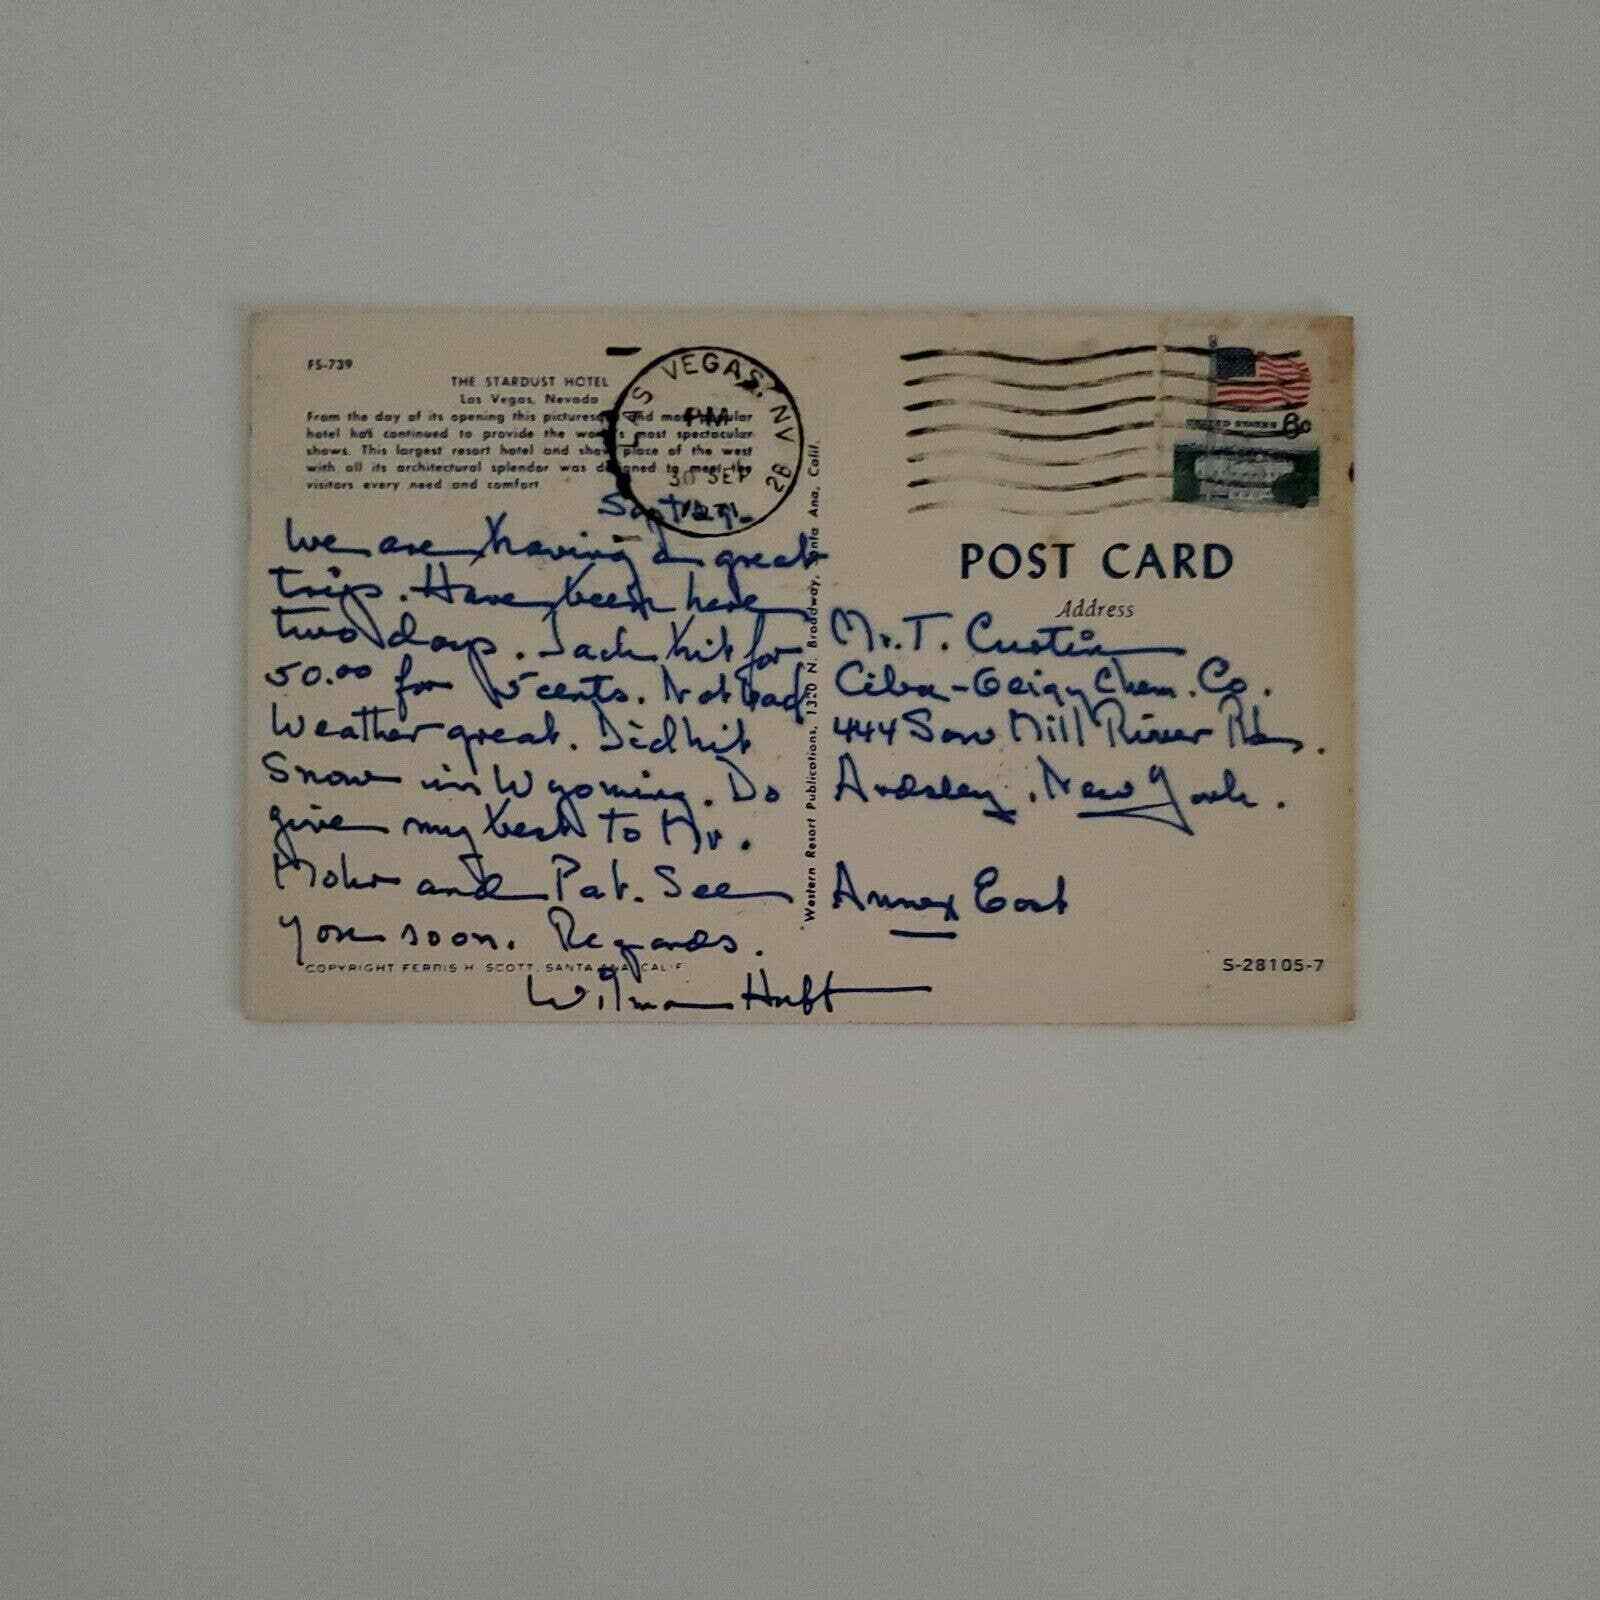 FS-739
THE STARDUST HOTEL
Las Vegas, Nevada
From the day of its opening this and most
hotel has continued to provide the most spectacular
shows. This largest resort hotel and show place of the west
with all its architectural splendor was to meet the
visitors every need and comfort
LAS VEGAS, NV 28
PM
30 SEP
Sept
We are having a great
trip. Have been here
two days. Jack hit for
50.00 for 5 cents. Not bad
Weather great. Did hit
Snow in Wyoming. Do
give my best to Mr.
Mohr and Pat. See
you soon. Regards.
Wilma Huft
COPYRIGHT FERRIS H. SCOTT, SANTA ANA, CALIF
Western Resort Publications, 1320 N. Broadway, Santa Ana, Calif.
UNITED STATES 6c
POST CARD
Address
Mr. T. Custin
Ciba-Geigy Chem. Co.
444 Saw Mill River Rd.
Ardsley, New York.
Annex East
S-28105-7